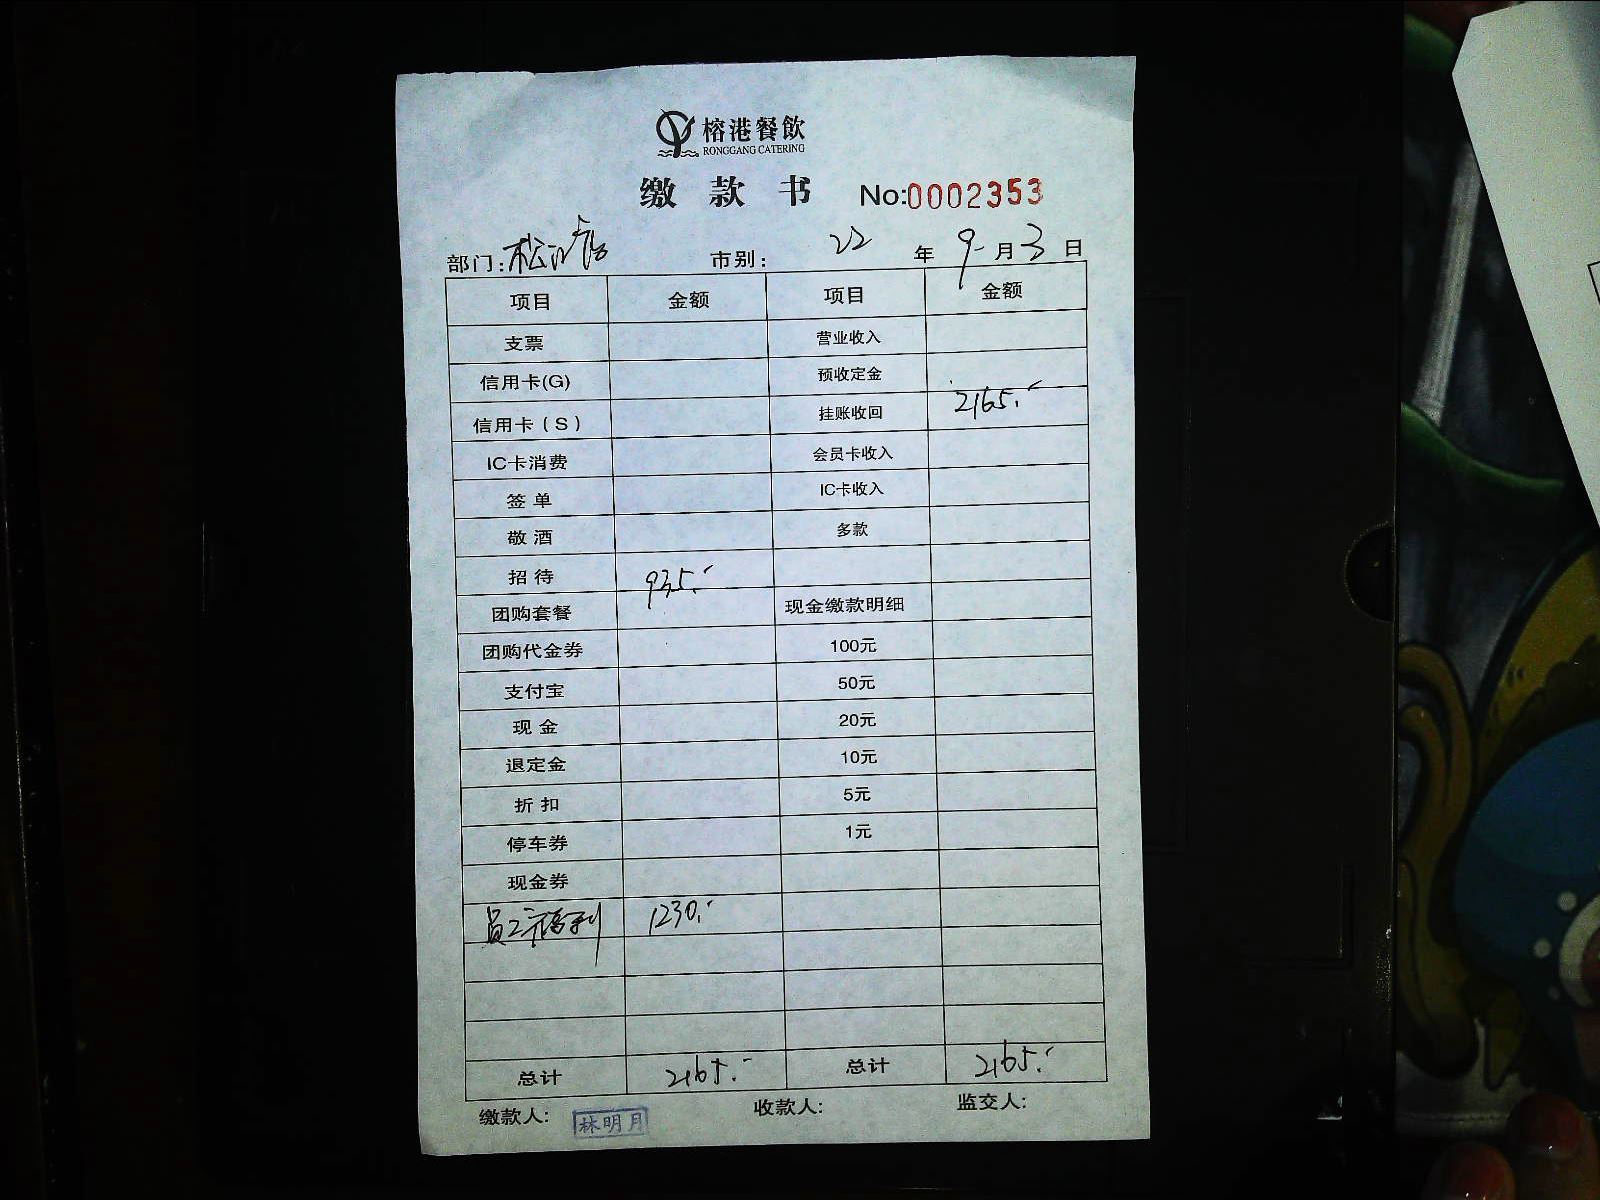 榕港餐飲
RONGGANG CATERING
缴 款 书 No:0002353
部门:松江店 市别: 22 年 9 月 3 日
项目 金额 项目 金额
支票 营业收入
信用卡(G) 预收定金
信用卡(S) 挂账收回 2165.-
IC卡消费 会员卡收入
签 单 IC卡收入
敬 酒 多款
招 待 935.-
团购套餐 现金缴款明细
团购代金券 100元
支付宝 50元
现 金 20元
退定金 10元
折 扣 5元
停车券 1元
现金券
员工福利 1230.-
总计 2165.- 总计 2165.-
缴款人: 林明月 收款人: 监交人: